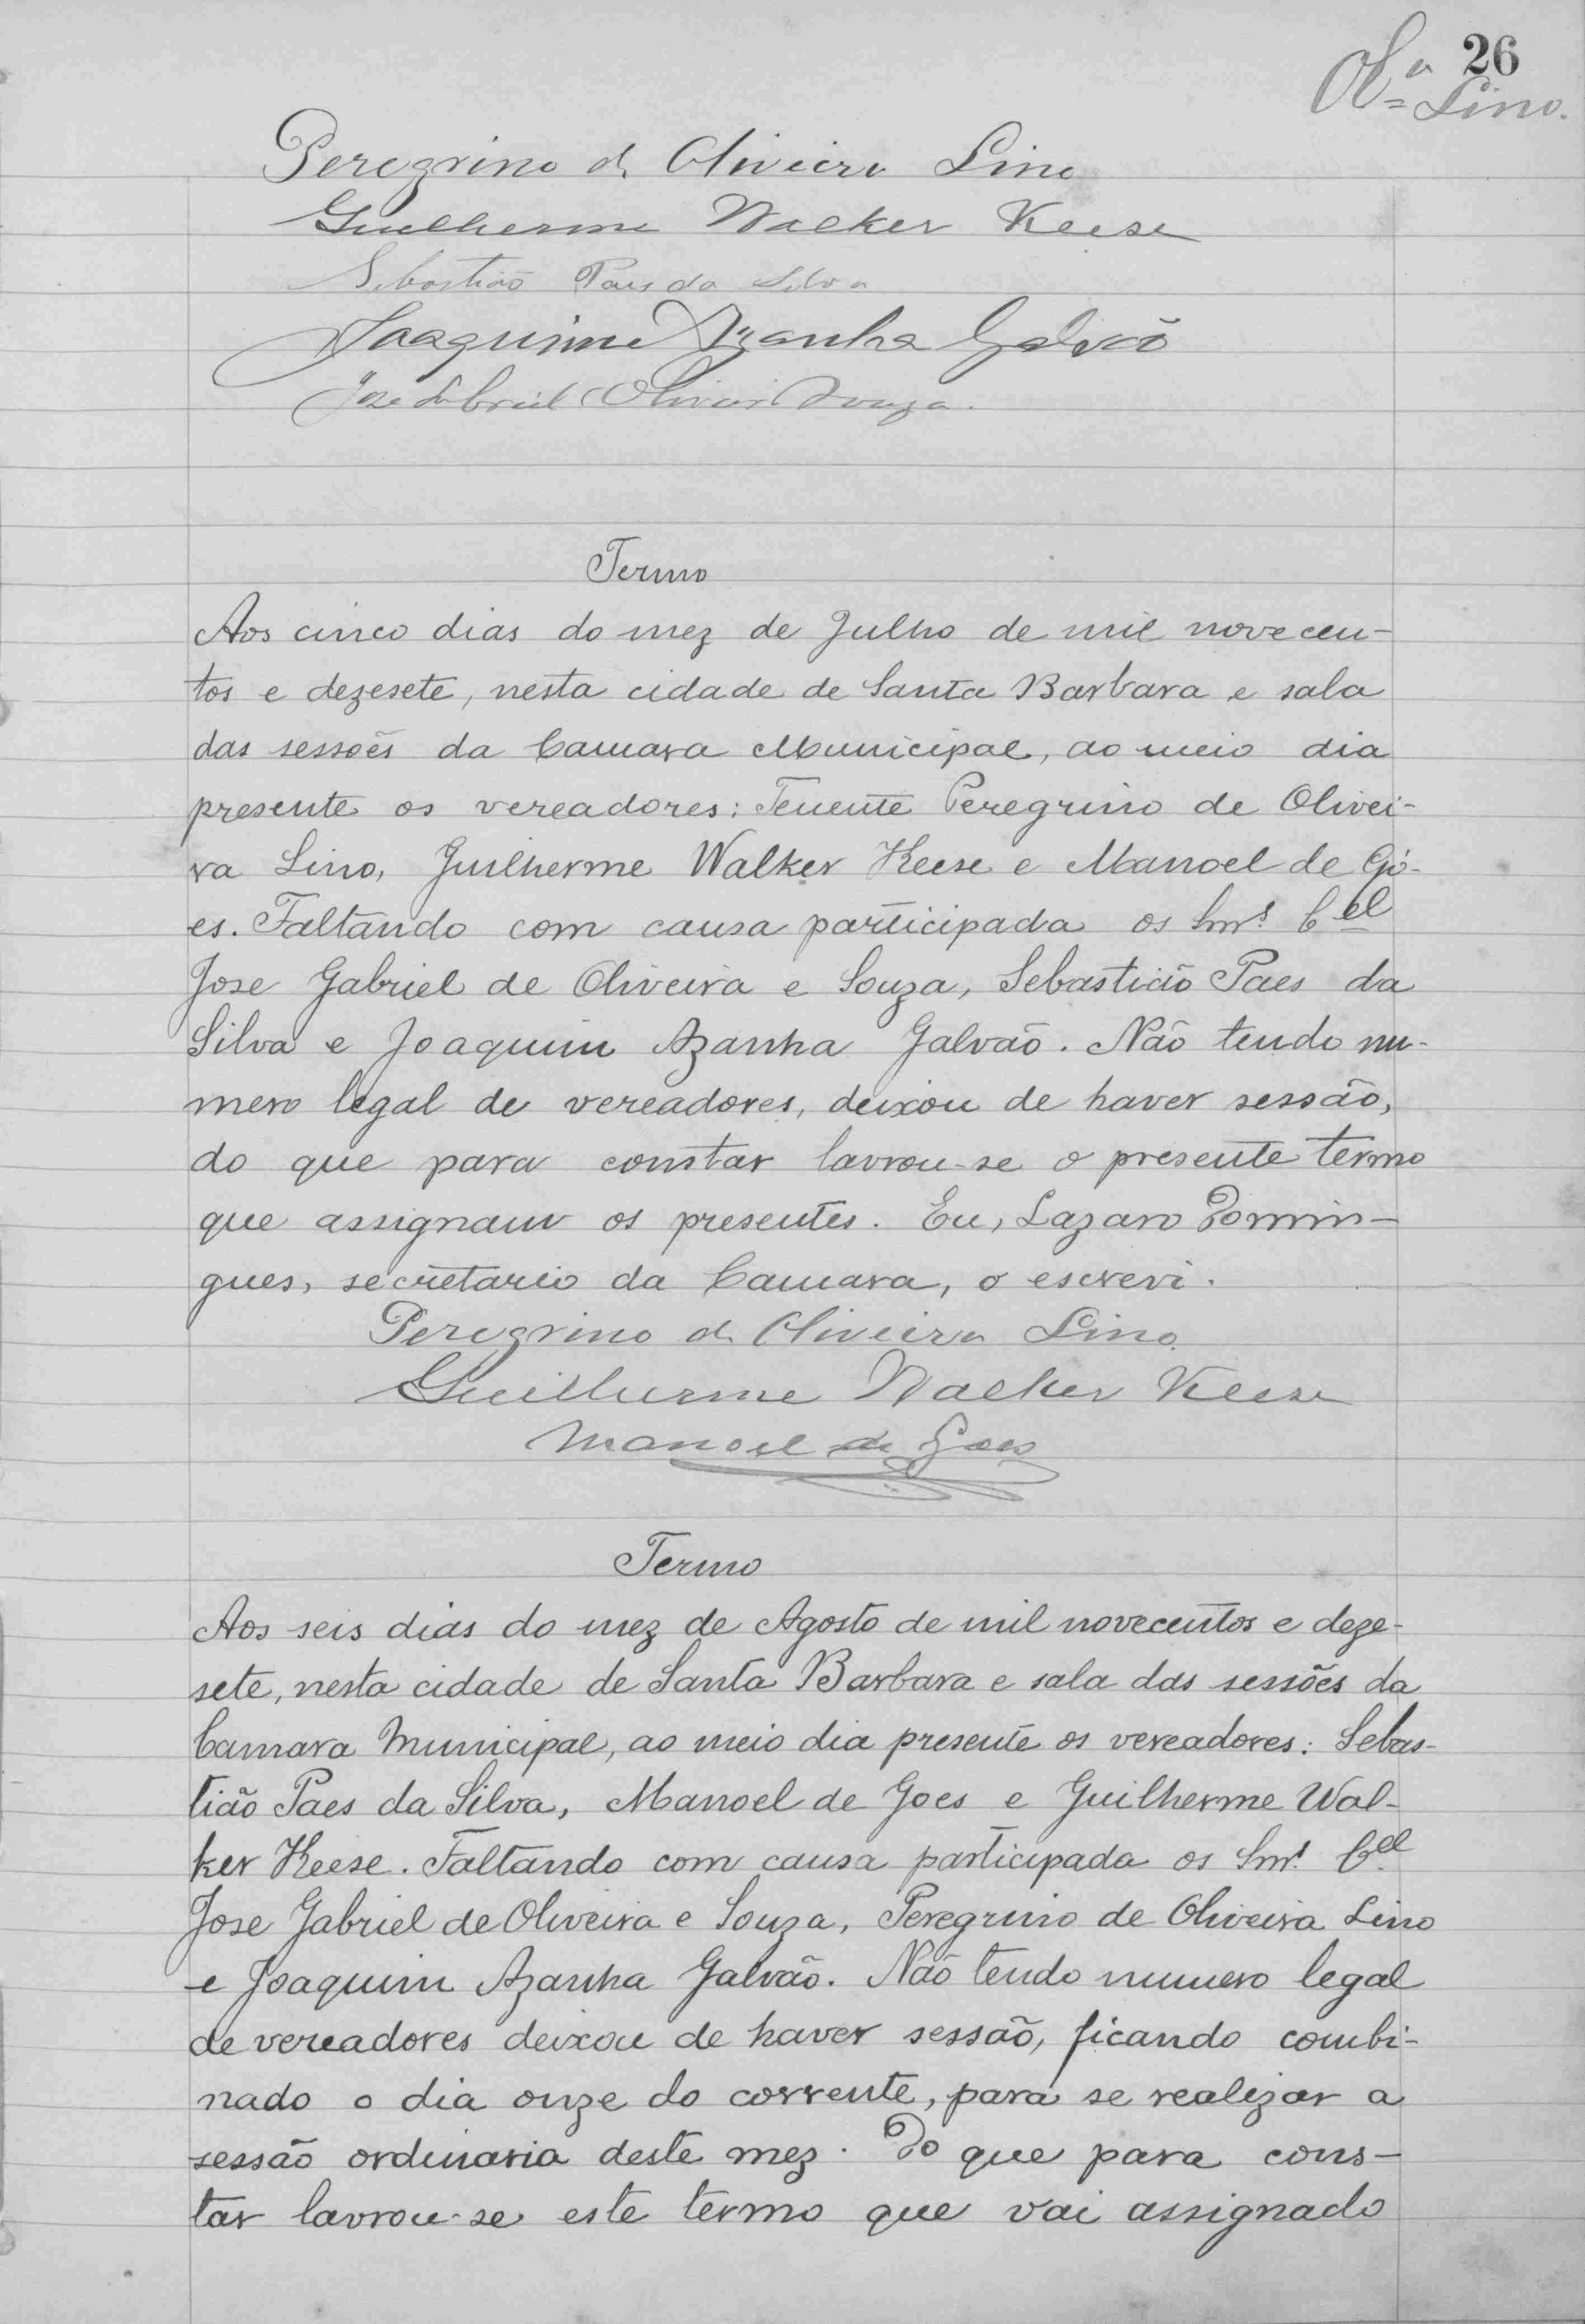 26
Olª Lino.
Peregrino de Oliveira Lino
Guilherme Walker Keese
Sebastião Paes da Silva
Joaquim Azanha Galvão
Jose Gabriel Oliveira Souza.
Termo
Aos cinco dias do mez de Julho de mil novecen-
tos e dezesete, nesta cidade de Santa Barbara e sala
das sessoẽs da Camara Municipal, ao meio dia
presente os vereadores: Tenente Peregrino de Olivei-
ra Lino, Guilherme Walker Keese e Manoel de Gó-
es. Faltando com causa participada os Snrs. Cel
Jose Gabriel de Oliveira e Souza, Sebastião Paes da
Silva e Joaquim Azanha Galvão. Não tendo nu-
mero legal de vereadores, deixou de haver sessão,
do que para constar lavrou-se o presente termo
que assignam os presentes. Eu, Lazaro Domin-
gues, secretario da Camara, o escrevi.
Peregrino de Oliveira Lino
Guilherme Walker Keese
Manoel de Goes
Termo
Aos seis dias do mez de Agosto de mil novecentos e deze-
sete, nesta cidade de Santa Barbara e sala das sessões da
Camara Municipal, ao meio dia presente os vereadores: Sebas-
tião Paes da Silva, Manoel de Goes e Guilherme Wal-
ker Keese. Faltando com causa participada os Snrs. Cel
Jose Gabriel de Oliveira e Souza, Peregrino de Oliveira Lino
e Joaquim Azanha Galvão. Não tendo numero legal
de vereadores deixou de haver sessão, ficando combi-
nado o dia onze do corrente, para se realizar a
sessão ordinaria deste mez. Do que para cons-
tar lavrou-se este termo que vai assignado